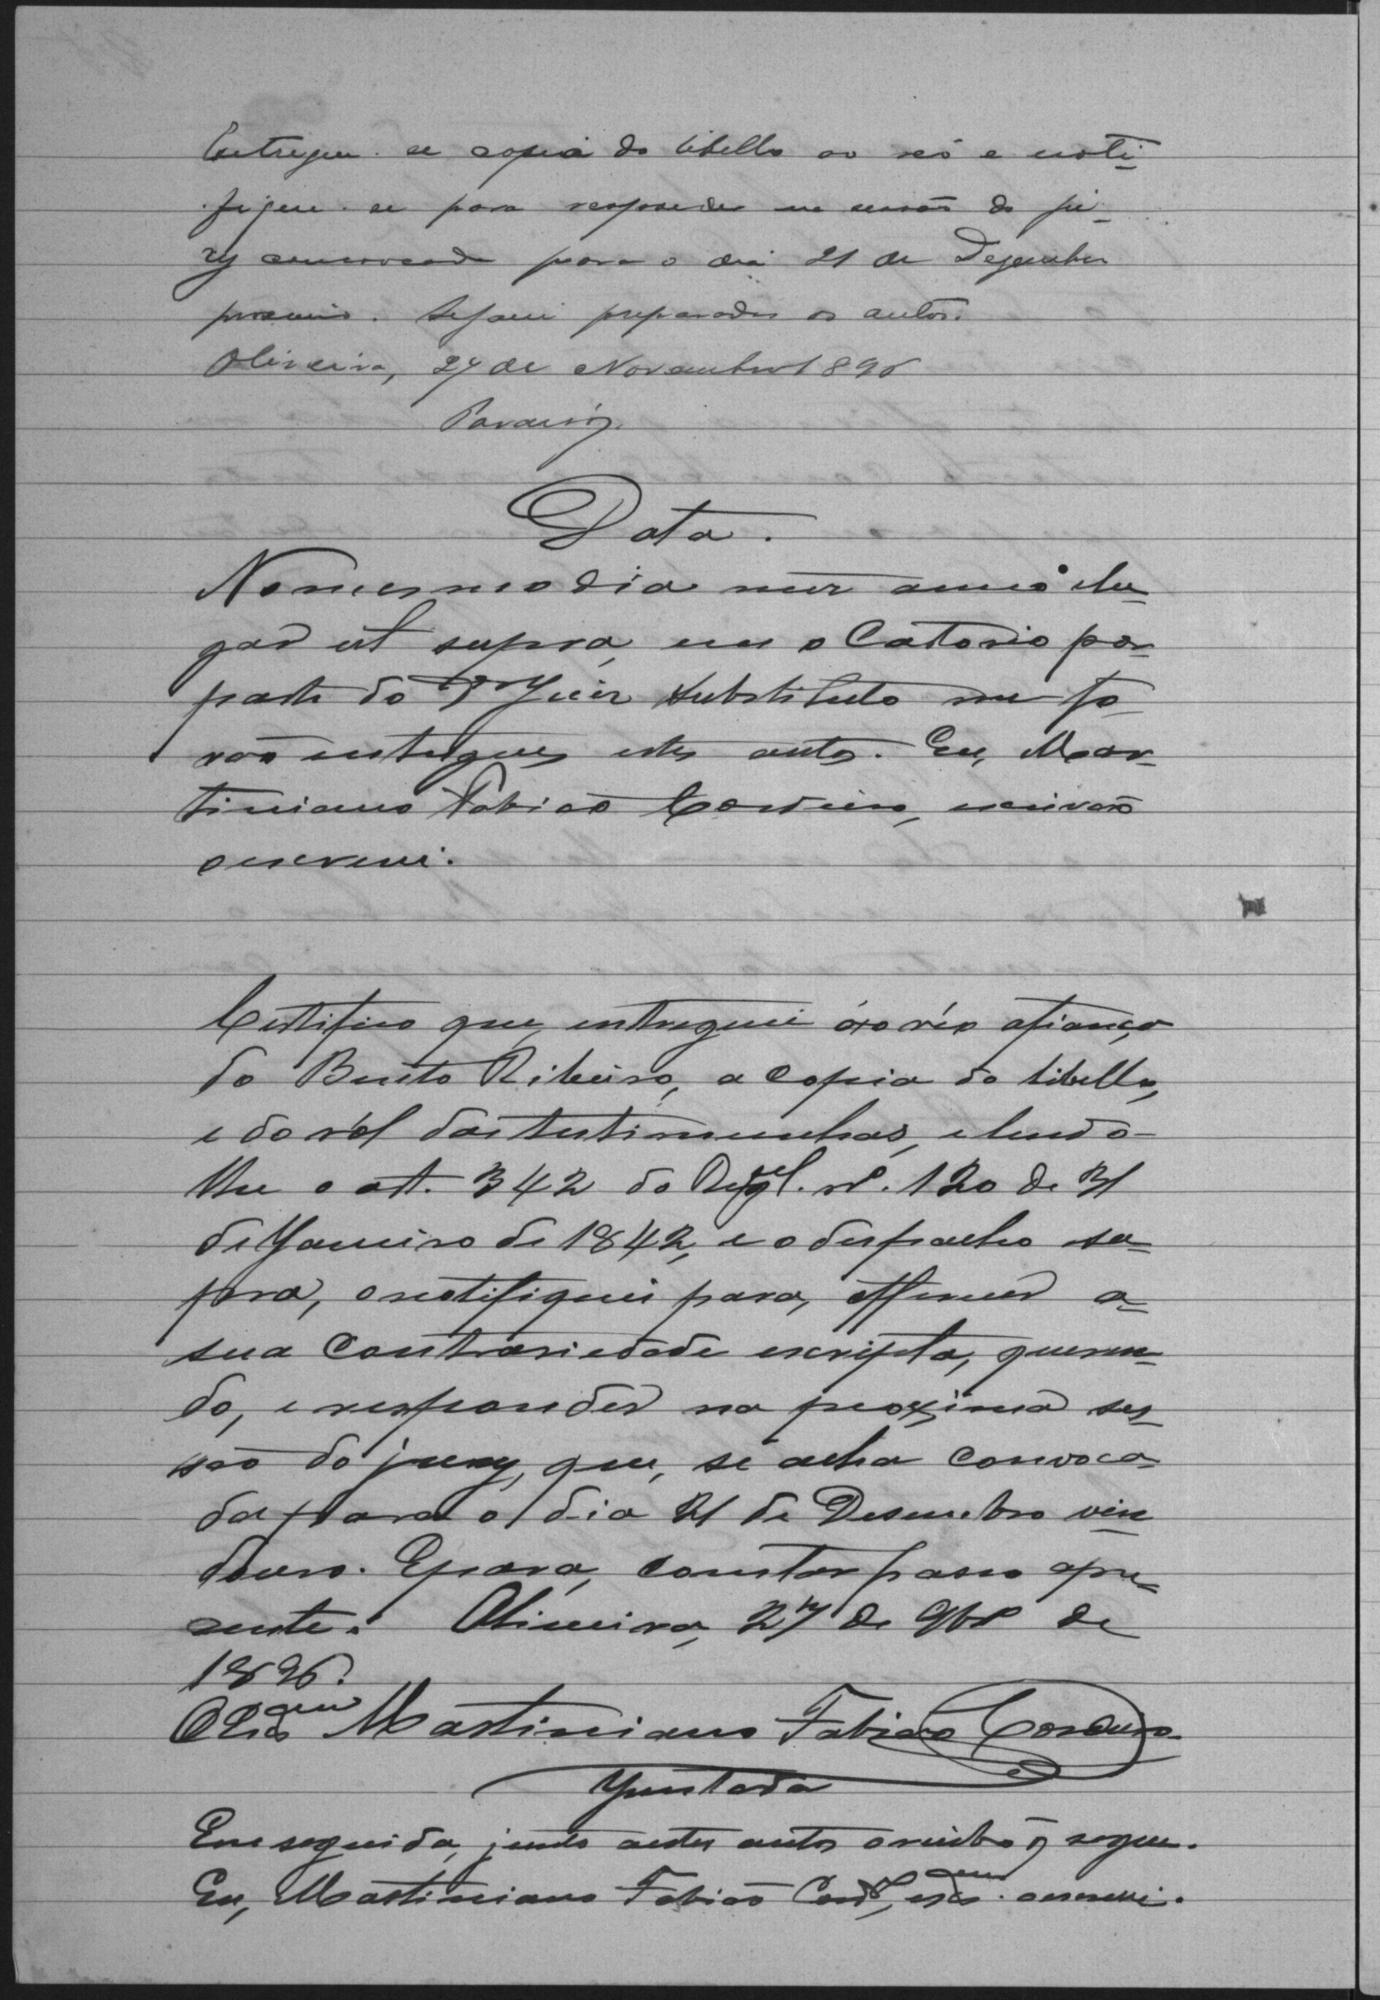 Entregue-se copia do libello ao reó e noti-
fique-se para responder na sessão do ju-
ry convocada para o dia 21 de Dezembro
proximo. Sejam preparados os autos.
Oliveira, 27 de Novembro 1896
Data.
No mesmo dia mez anno e lu-
gar ut supra, em o Catorio por
parte do Dor Juiz Substituto me fo-
rão entregues estes autos. Eu, Mar-
tiniano Fabião Cordeiro, escrivão
o escrevi.
Certifico que, entreguei ao réo afiança
do Bento Ribeiro, a copia do libello,
e do ról das testimunhas, e lendo-
lhe o art. 342 do Regul. nº. 120 de 31
de Janeiro de 1842, e o despacho su-
pra, o notifiquei para, offerecer a
sua contrariedade escripta, queren-
do, e responder na proxima ses-
são do jury, que, se acha convoca-
da para o dia 21 de Desembro vin
douro. E para, constar passo a pre-
sente. Oliveira, 27 de 9bro de
1896.
Martiniano Fabião Cordeiro
Juntada
Em seguida, junto a estes autos o recibo q segue.
Eu, Martiniano Fabião Cordº, escram. o escrevi.